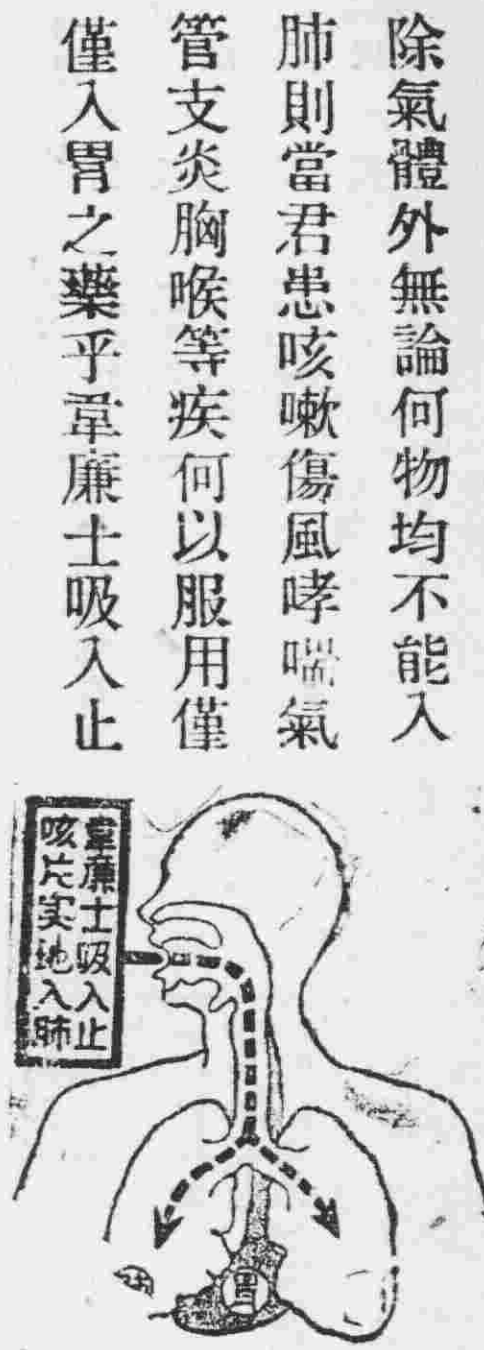 除氣體外無論何物均不能入
肺則當君患咳嗽傷風哮喘氣
管支炎胸喉等疾何以服用僅
僅入胃之藥乎韋廉士吸入止
韋廉士吸入止
咳片实地入肺
胃